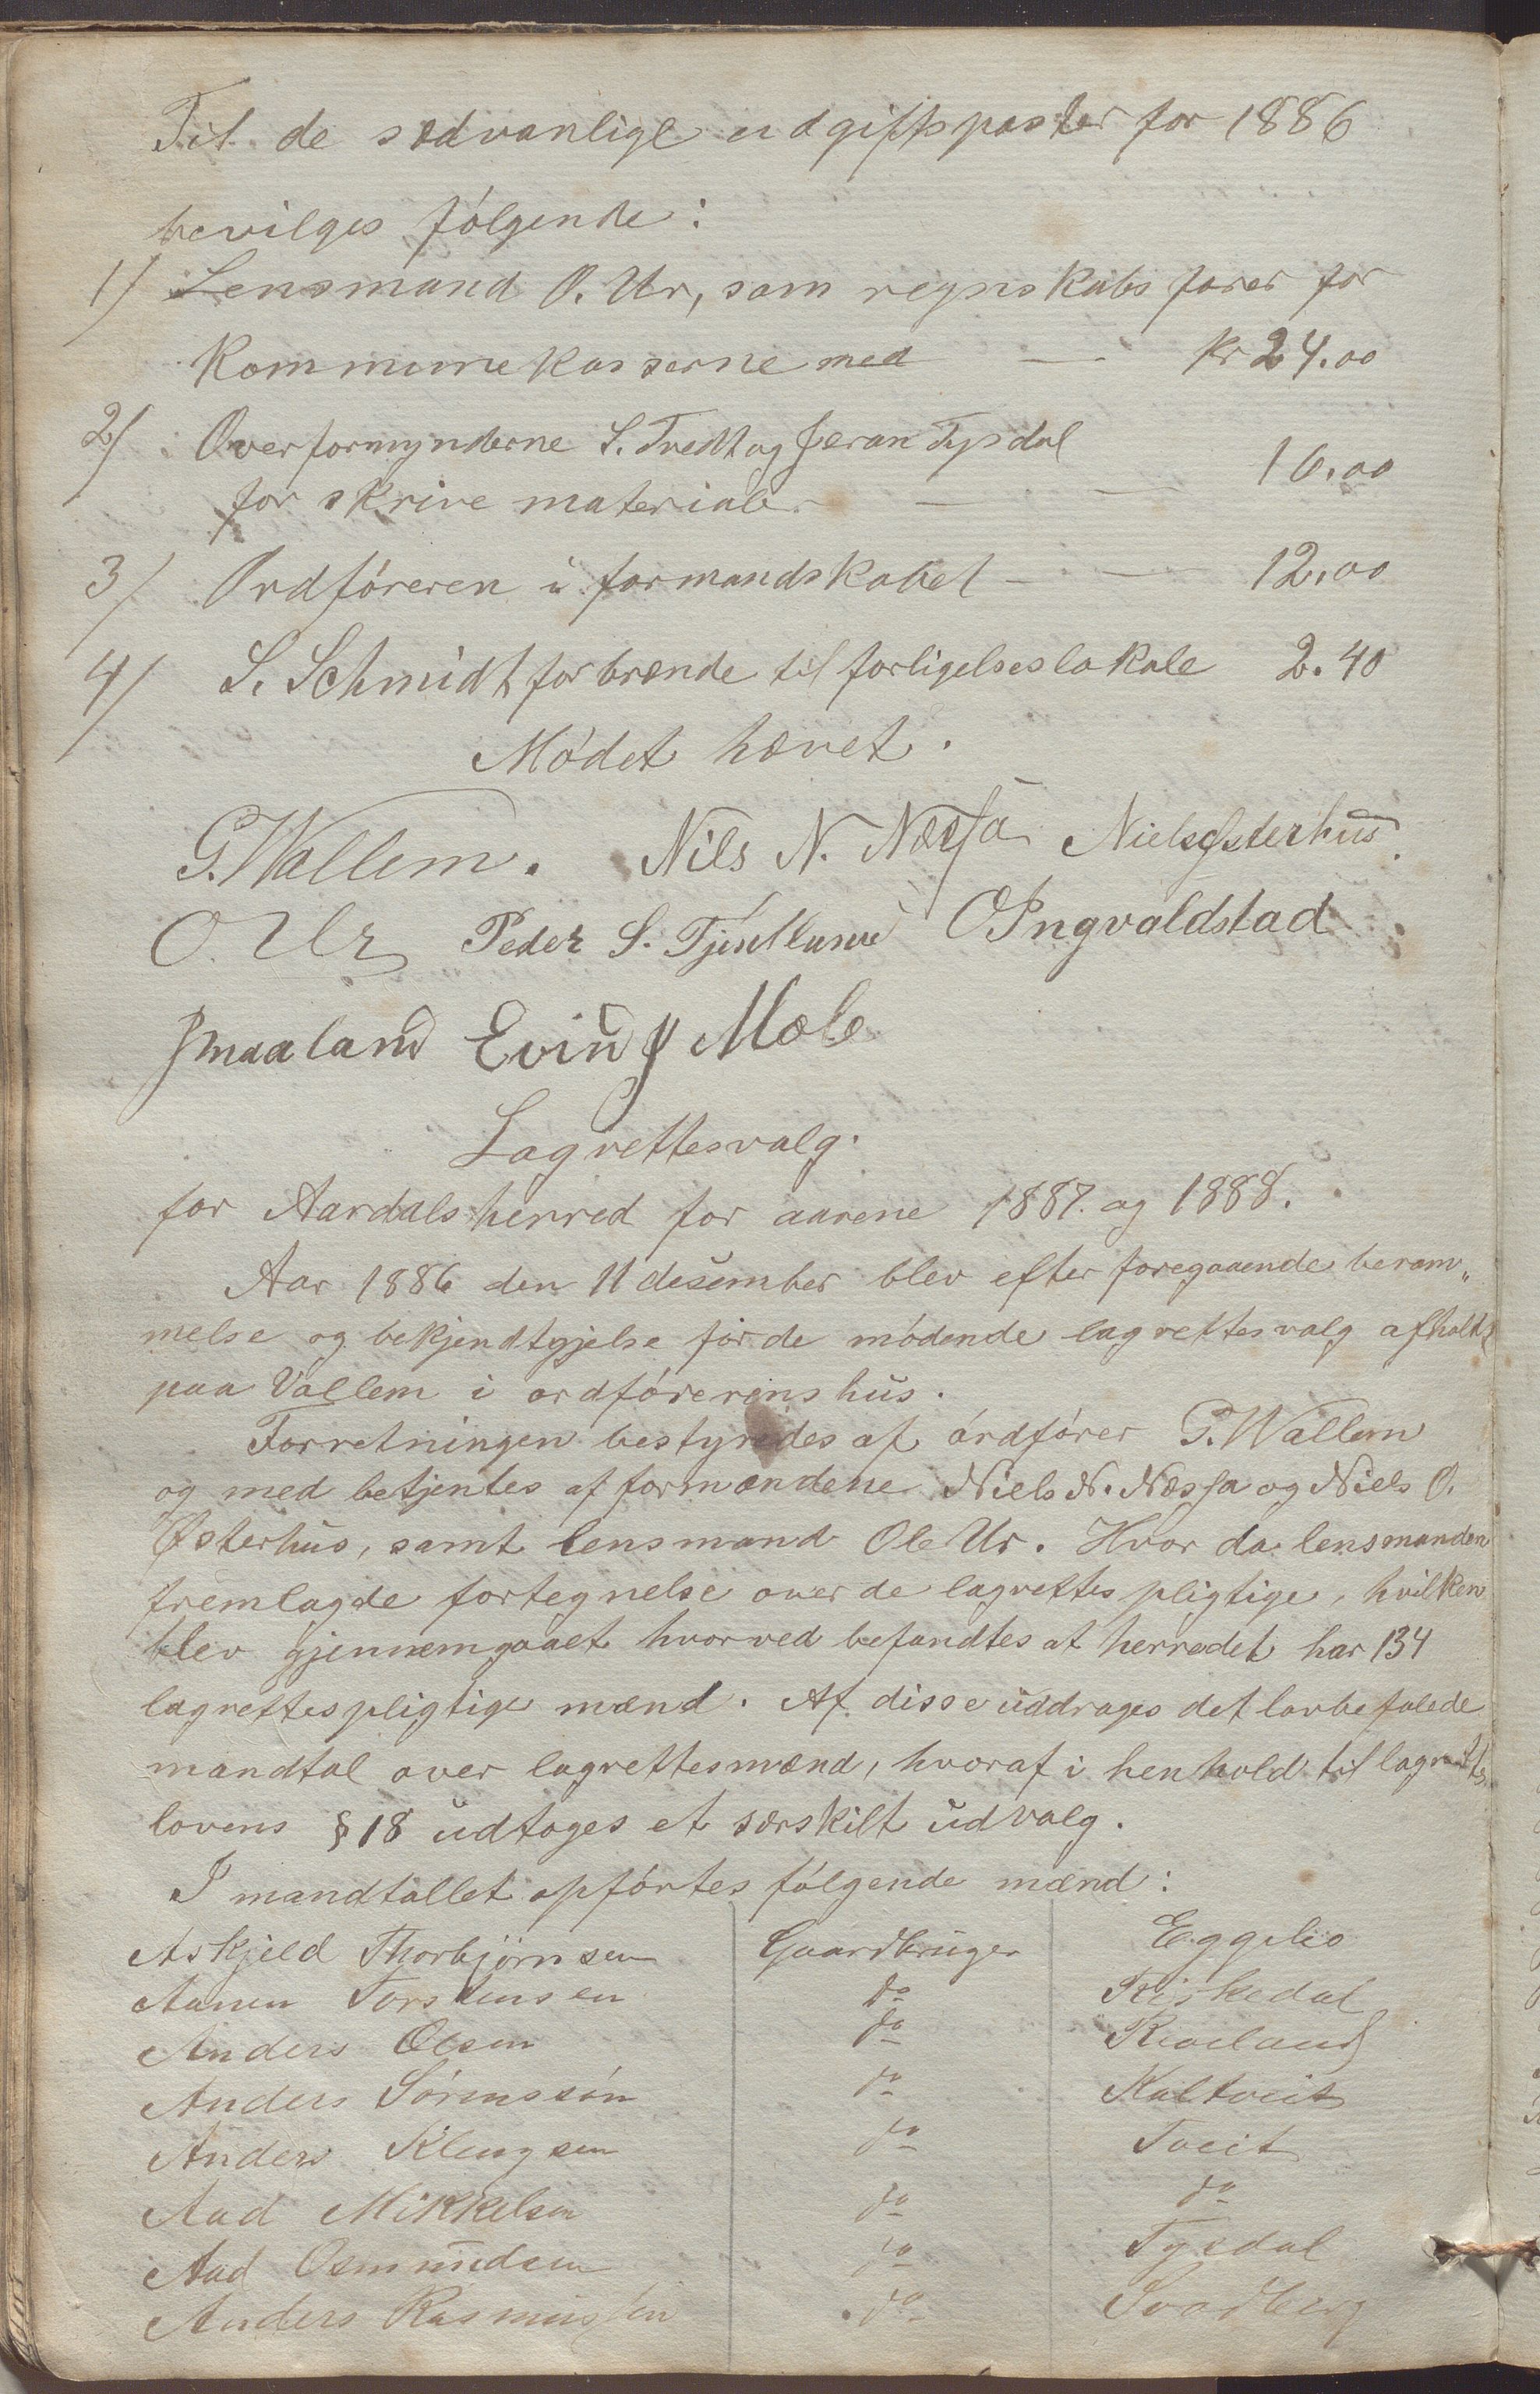 Til de sædvanlige udgiftsposter for 1886
bevilges følgende:
1/ Lensmand O. Ur, som regnskabsfører for
Kommunekasserne med — — Kr 24.00
2/ Overformynderne S. Tvedt og Jeran Tysdal
for skrive materialer — — 16.00
3/ Ordføreren i formandskabet — — 12.00
4/ S. Schmidt for brænde til forligelseslokale 2.40
Mødet hævet.
G. Wallem. Nils N. Næsså Niels Østerhus
O. Ur Peder S. Tjentland O Ingvaldstad
J maaland Evind J Mæle
Lagrettesvalg.
for Aardals herred for aarene 1887. og 1888.
Aar 1886 den 11 desember blev efter foregaaende beram„
melse og bekjendtgjelse for de mødende lagrettesvalg afholdt
paa Vallem i ordførerens hus.
Forretningen bestyredes af ordfører G. Wallem
og med betjentes af formændene Niels N. Næssa og Niels O.
Østerhus, samt lensmand Ole Ur. Hvor da lensmanden
fremlagde fortegnelse over de lagrettes pligtige, hvilken
blev gjennemgaaet hvorved befandtes at herredet har 134
lagrettespligtige mænd. Af disse uddrages det lovbefalede
mandtal over lagrettesmænd, hvoraf i henhold til lagrettes
lovens § 18 udtages et særskilt udvalg.
I mandtallet opførtes følgende mænd:
Askjeld Thorbjørnsen Gaardbruger Eggelio
Aanen Torstensen do Riskedal
Anders Olsen do Riveland
Anders Sørenssøn do Kaltveit
Anders Klengsen do Tveit
Aad Mikkelsen do do
Aad Osmundsen do Tysdal
Anders Rasmussen do Svadberg